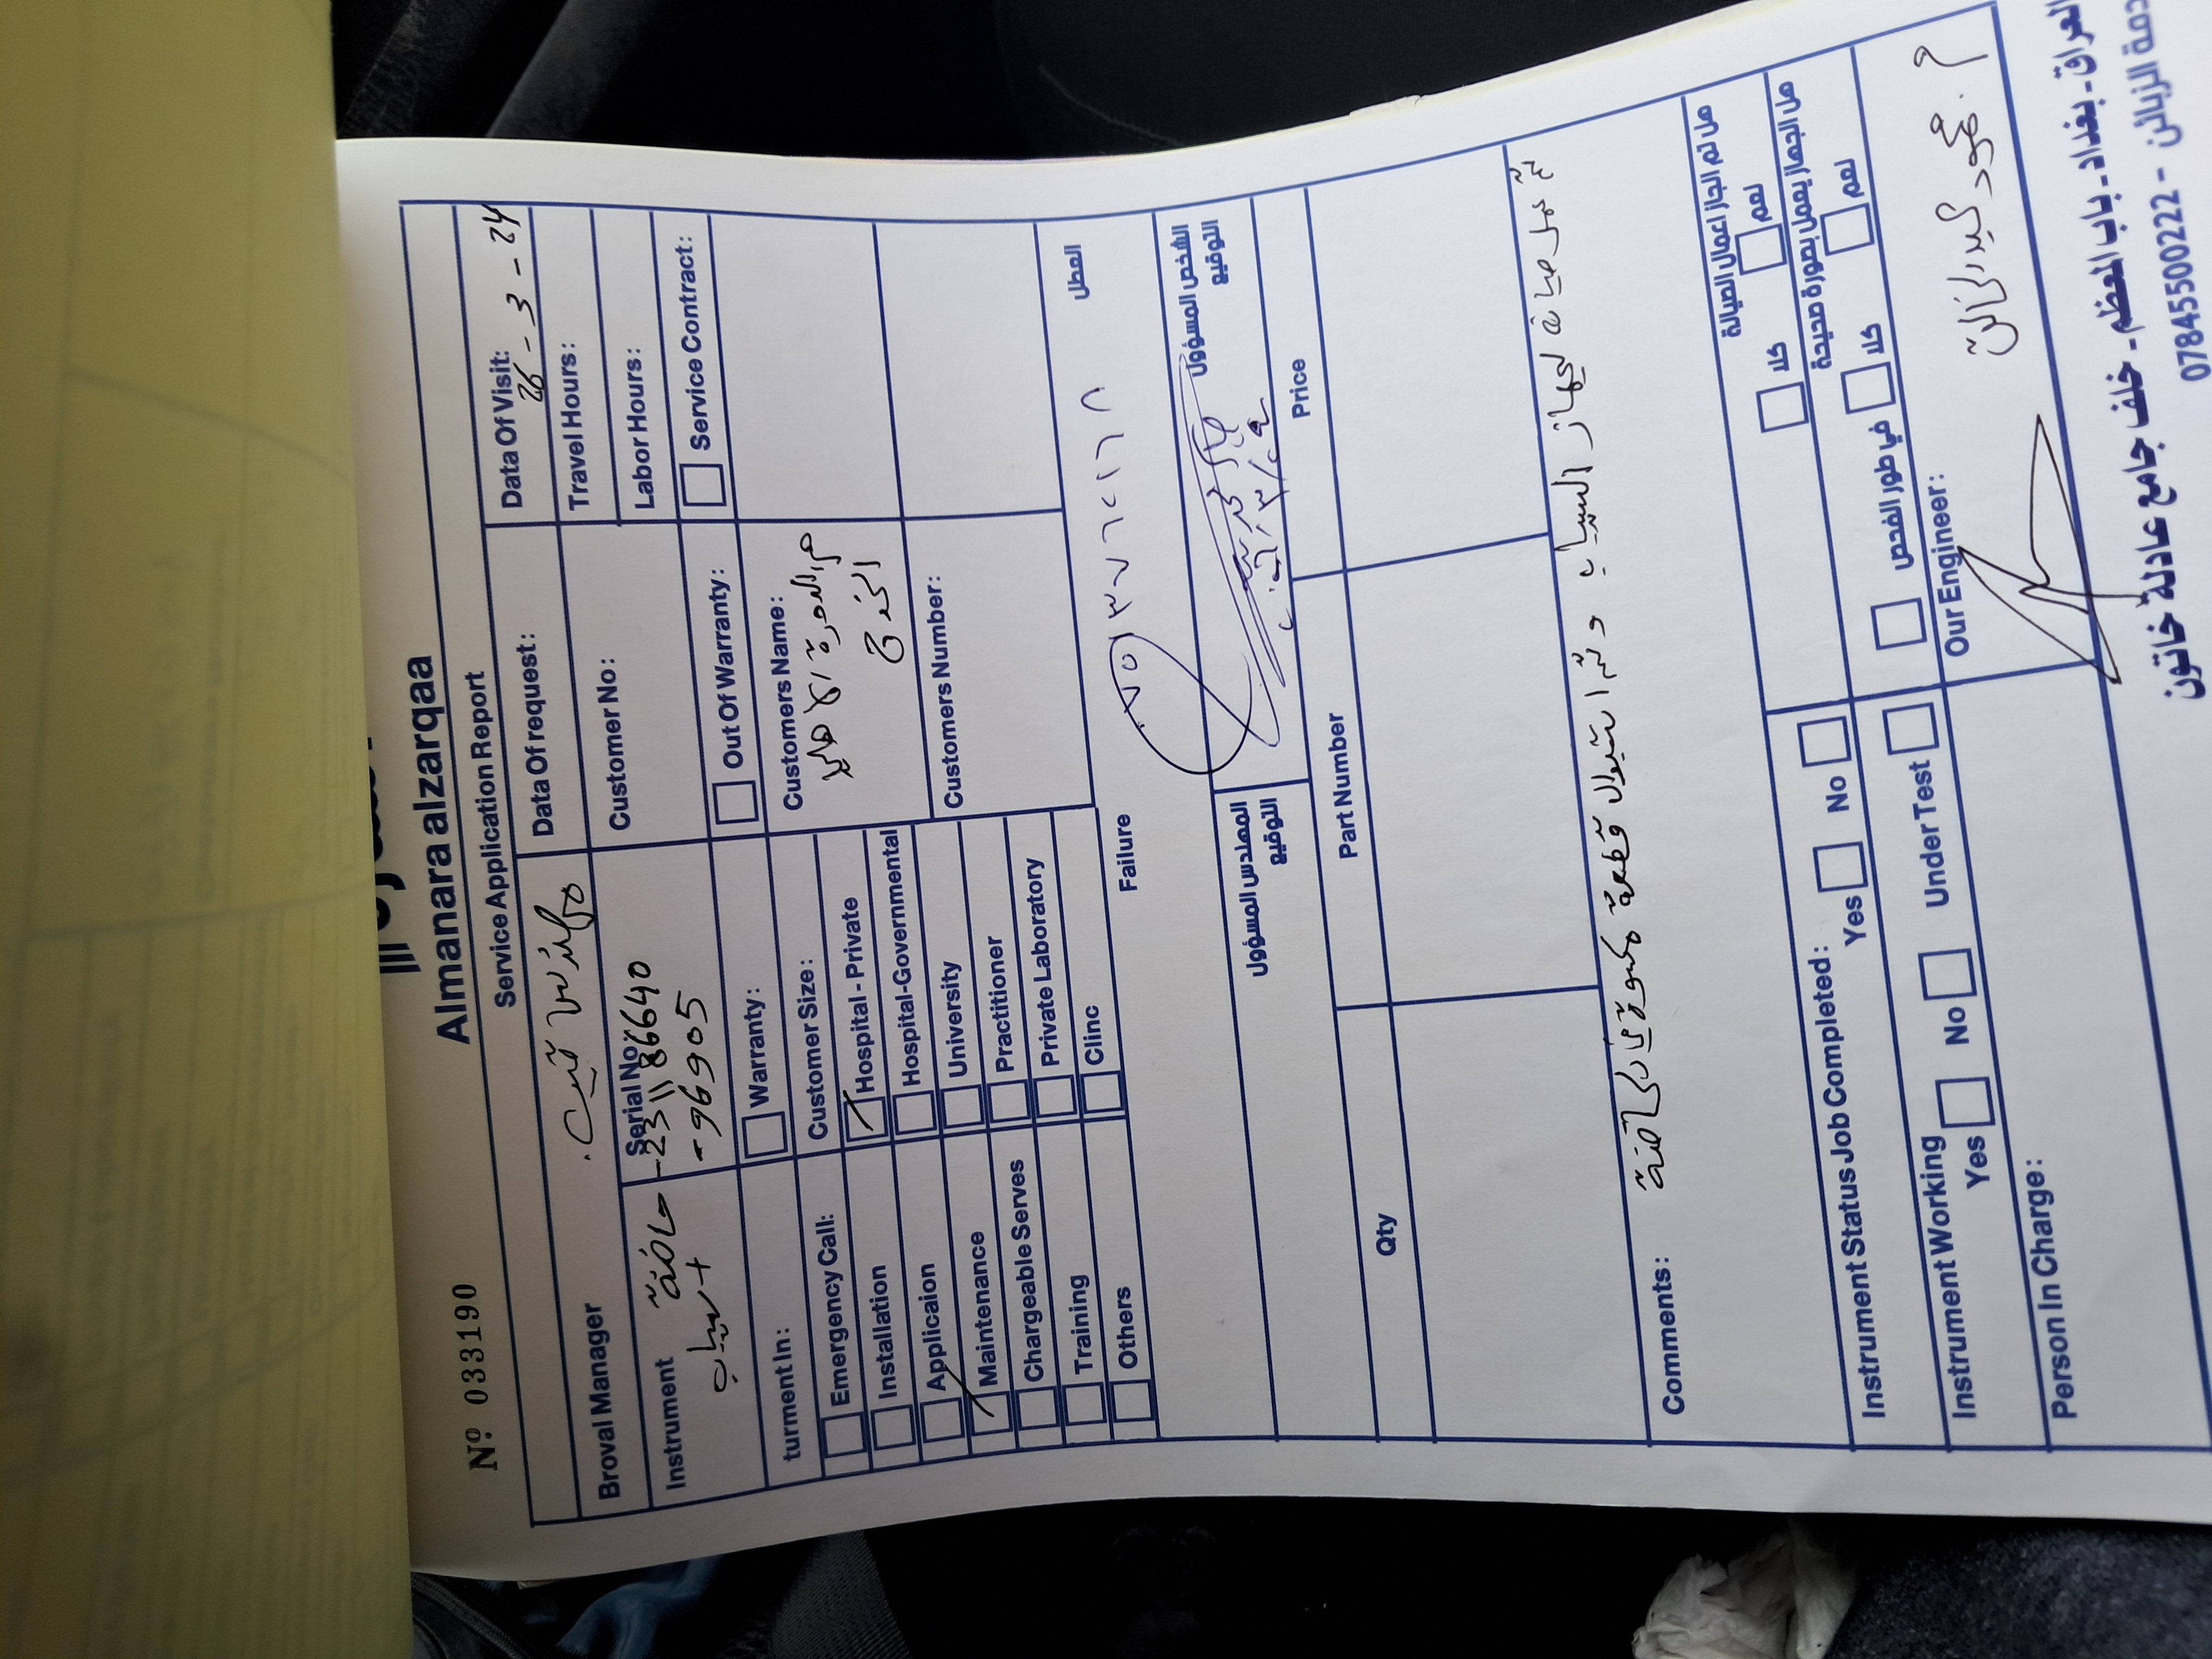 Nº 033190
Almanara alzarqaa
Service Application Report
Data Of request:
Data Of Visit:
26 - 3 - 24
Broval Manager
Customer No:
Travel Hours:
Instrument
حاضنة
+ سيباب
Serial No:
- 2311866640
- 96905
Labor Hours:
Warranty:
Out Of Warranty:
Service Contract:
turment In:
Customer Size:
Customers Name:
Emergency Call:
Hospital - Private
Installation
Hospital-Governmental
Applicaion
University
Customers Number:
Maintenance
Practitioner
Chargeable Serves
Private Laboratory
Training
Clinc
Others
Failure
العطل
المهندس المسؤول
التوقيع
الشخص المسؤول
التوقيع
Qty
Part Number
Price
Comments:
تم عمل صيانة لجهاز السيباب وتم استبدال قطعة
Instrument Status Job Completed:
Yes
No
هل تم انجاز اعمال الصيانة
كلا
نعم
Instrument Working
Yes
No
Under Test
هل الجهاز يعمل بصورة صحيحة
في طور الفحص
كلا
نعم
Person In Charge:
Our Engineer:
العراق - بغداد - باب المعظم - خلف جامع عادلة خاتون
07845500222 -